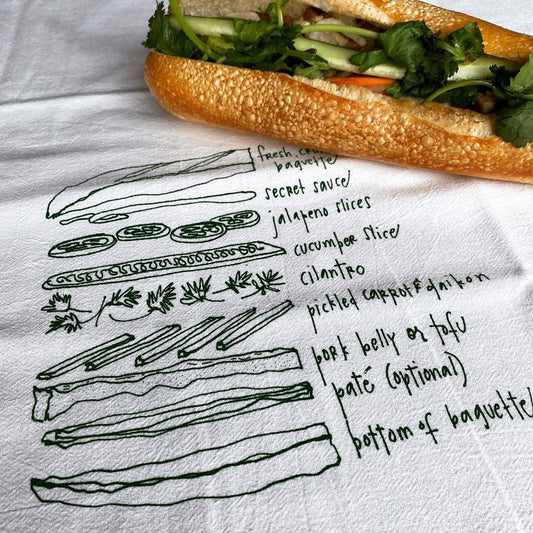 fresh, 
baguette
secret sauce
jalapeno slices
cucumber slice
cilantro
pickled carrot & daikon
pork belly or tofu
paté (optional)
bottom of baguette